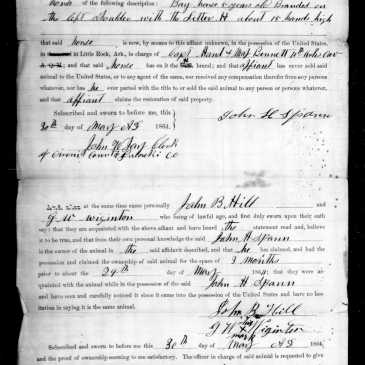 horse of the following description: Bay horse 6 years old Branded on
the left Shoulder with the Letter H about 15 hands high
that said horse is now, by means to this affiant unknown, in the possession of the United States,
in Little Rock, Ark., in charge of Capt
and that said horse has on it the brand; and that affiant has never sold said
animal to the United States, or to any agent of the same, nor received any compensation therefor from any persons
whatever, nor has he ever parted with the title to or sold the said animal to any person or persons whatever,
and that affiant claims the restoration of said property.
John H Spann
Subscribed and sworn to before me, this
30th day of May AD 1864.
John W Jay Clerk
of Circuit Court Pulaski Co
at the same time came personally John B. Hill and
G W Wiginton who being of lawful age, and first duly sworn upon their oath
say: that they are acquainted with the above affiant and have heard the statement read and believe
it to be true, and that from their own personal knowledge the said John H Spann
is the owner of the animal in the said affidavit described, and that he has claimed, and had the
possession and claimed the ownership of said animal for the space of 3 months
prior to about the 29th day of May 1864; that they were acquainted
with the animal while in the possession of the said John H Spann
and have seen and carefully noticed it since it came into the possession of the United States and have no hesitation
in saying it is the same animal.
John B Hill
G W Wiginton
his mark
Subscribed and sworn to before me this 30th day of May AD 1864,
and the proof of ownership seeming to me satisfactory. The officer in charge of said animal is requested to give